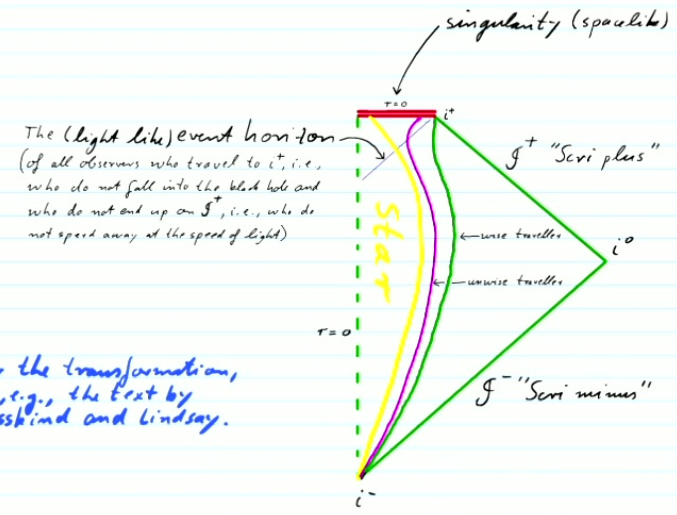 singularity (spacelike)
r=0
i⁺
The (light like) event horizon
(of all observers who travel to i⁺, i.e.,
who do not fall into the black hole and
who do not end up on 𝓘⁺, i.e., who do
not speed away at the speed of light)
𝓘⁺ "Scri plus"
Star
wise traveller
i⁰
unwise traveller
r=0
the transformation,
e.g., the text by
sskind and Lindsay.
𝓘⁻ "Scri minus"
i⁻